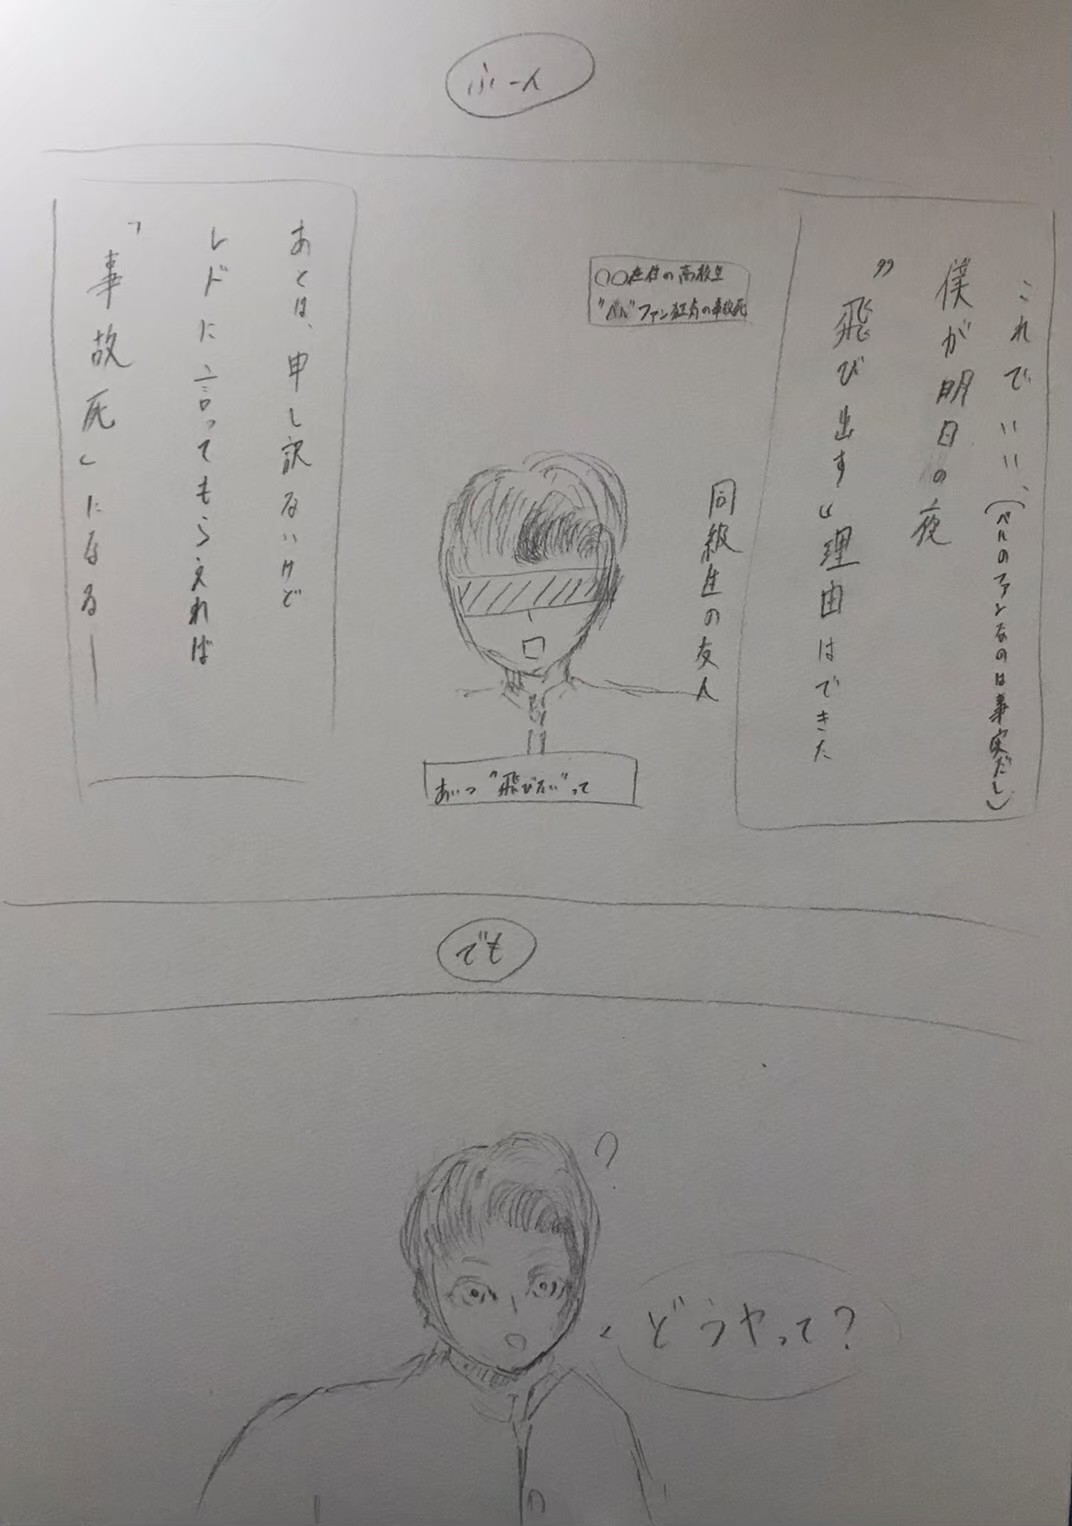 ふーん
これでいい、(ベルのファンなのは事実だし)
僕が明日の夜
”飛び出す”理由はできた
〇〇在住の高校生
”ベル”ファン狂気の事故死
同級生の友人
あいつ”飛びたい”って
あとは、申し訳ないけど
レドに言ってもらえれば
「事故死」になる―
でも
?
どうやって?